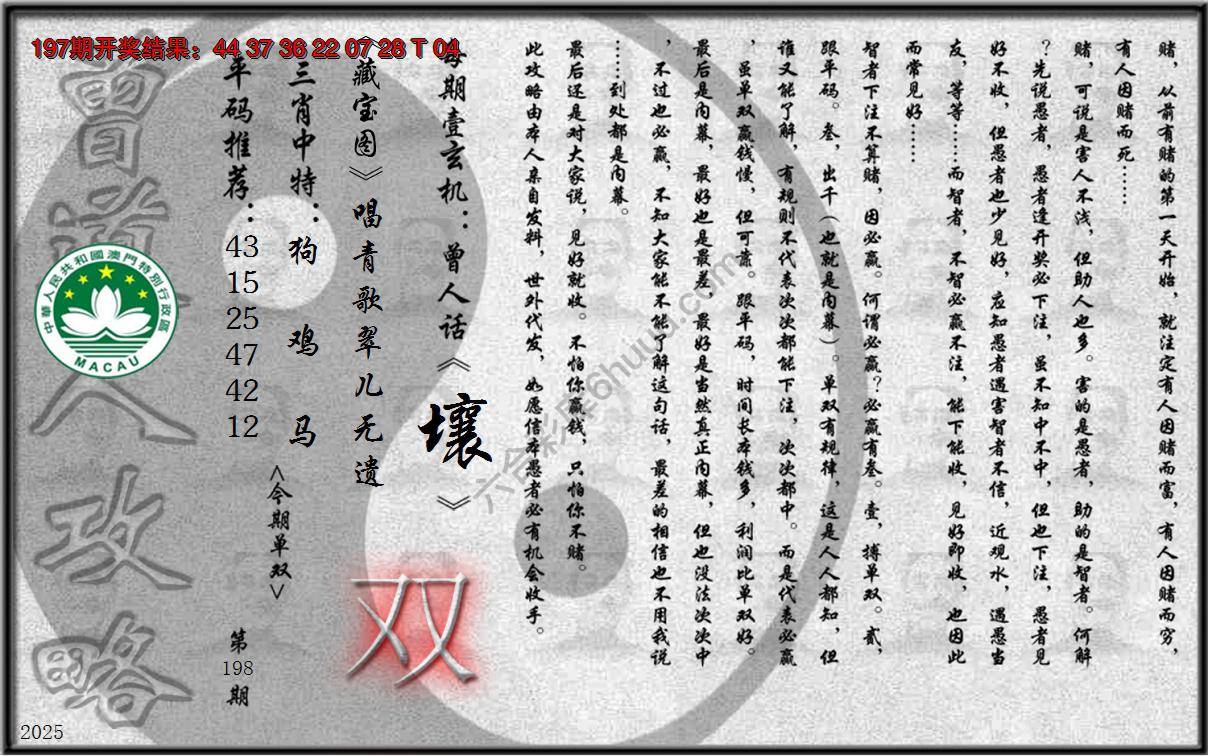 197期开奖结果：44 37 36 22 07 28 T 04
赌，从前有赌的第一天开始，就注定有人因赌而富，有人因赌而穷，
有人因赌而死……
赌，可说是害人不浅，但助人也多。害的是愚者，助的是智者。何解
？先说愚者，愚者逢开奖必下注，虽不知中不中，但也下注，愚者见
好不收，但愚者也少见好，应知愚者遇害智者不信，近观水，遇愚当
友，等等……而智者，不智必赢不注，能下能收，见好即收，也因此
而常见好……
智者下注不算赌，因必赢。何谓必赢？必赢有叁。壹，搏单双。贰，
跟平码。叁，出千（也就是内幕）。单双有规律，这是人人都知，但
谁又能了解，有规则不代表次次都能下注，次次都中。而是代表必赢
，虽单双赢钱慢，但可靠。跟平码，时间长本钱多，利润比单双好。
最后是内幕，最好也是最差，最好是当然真正内幕，但也没法次次中
，不过也必赢，不知大家能不能了解这句话，最差的相信也不用我说
……到处都是内幕。
最后还是对大家说，见好就收。不怕你赢钱，只怕你不赌。
此攻略由本人亲自发料，世外代发，如愿信本愚者必有机会收手。
每期壹玄机：曾人话《壤》
《藏宝图》唱青歌翠儿无遗
三肖中特：狗 鸡 马
平码推荐：43 15 25 47 42 12
<今期单双>
双
第198期
曾道人攻略
中華人民共和國澳門特別行政區
MACAU
六合彩库6huuu.com
2025